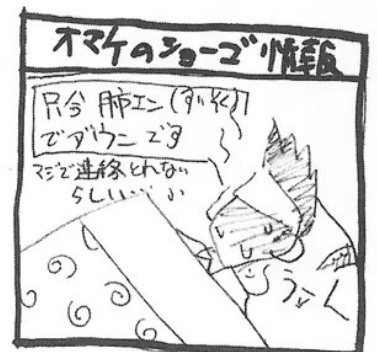 オマケのショーゴ情報
只今 肺エン(ぜんそく)
でダウンです
マジで連絡とれない
らしい…
うーん